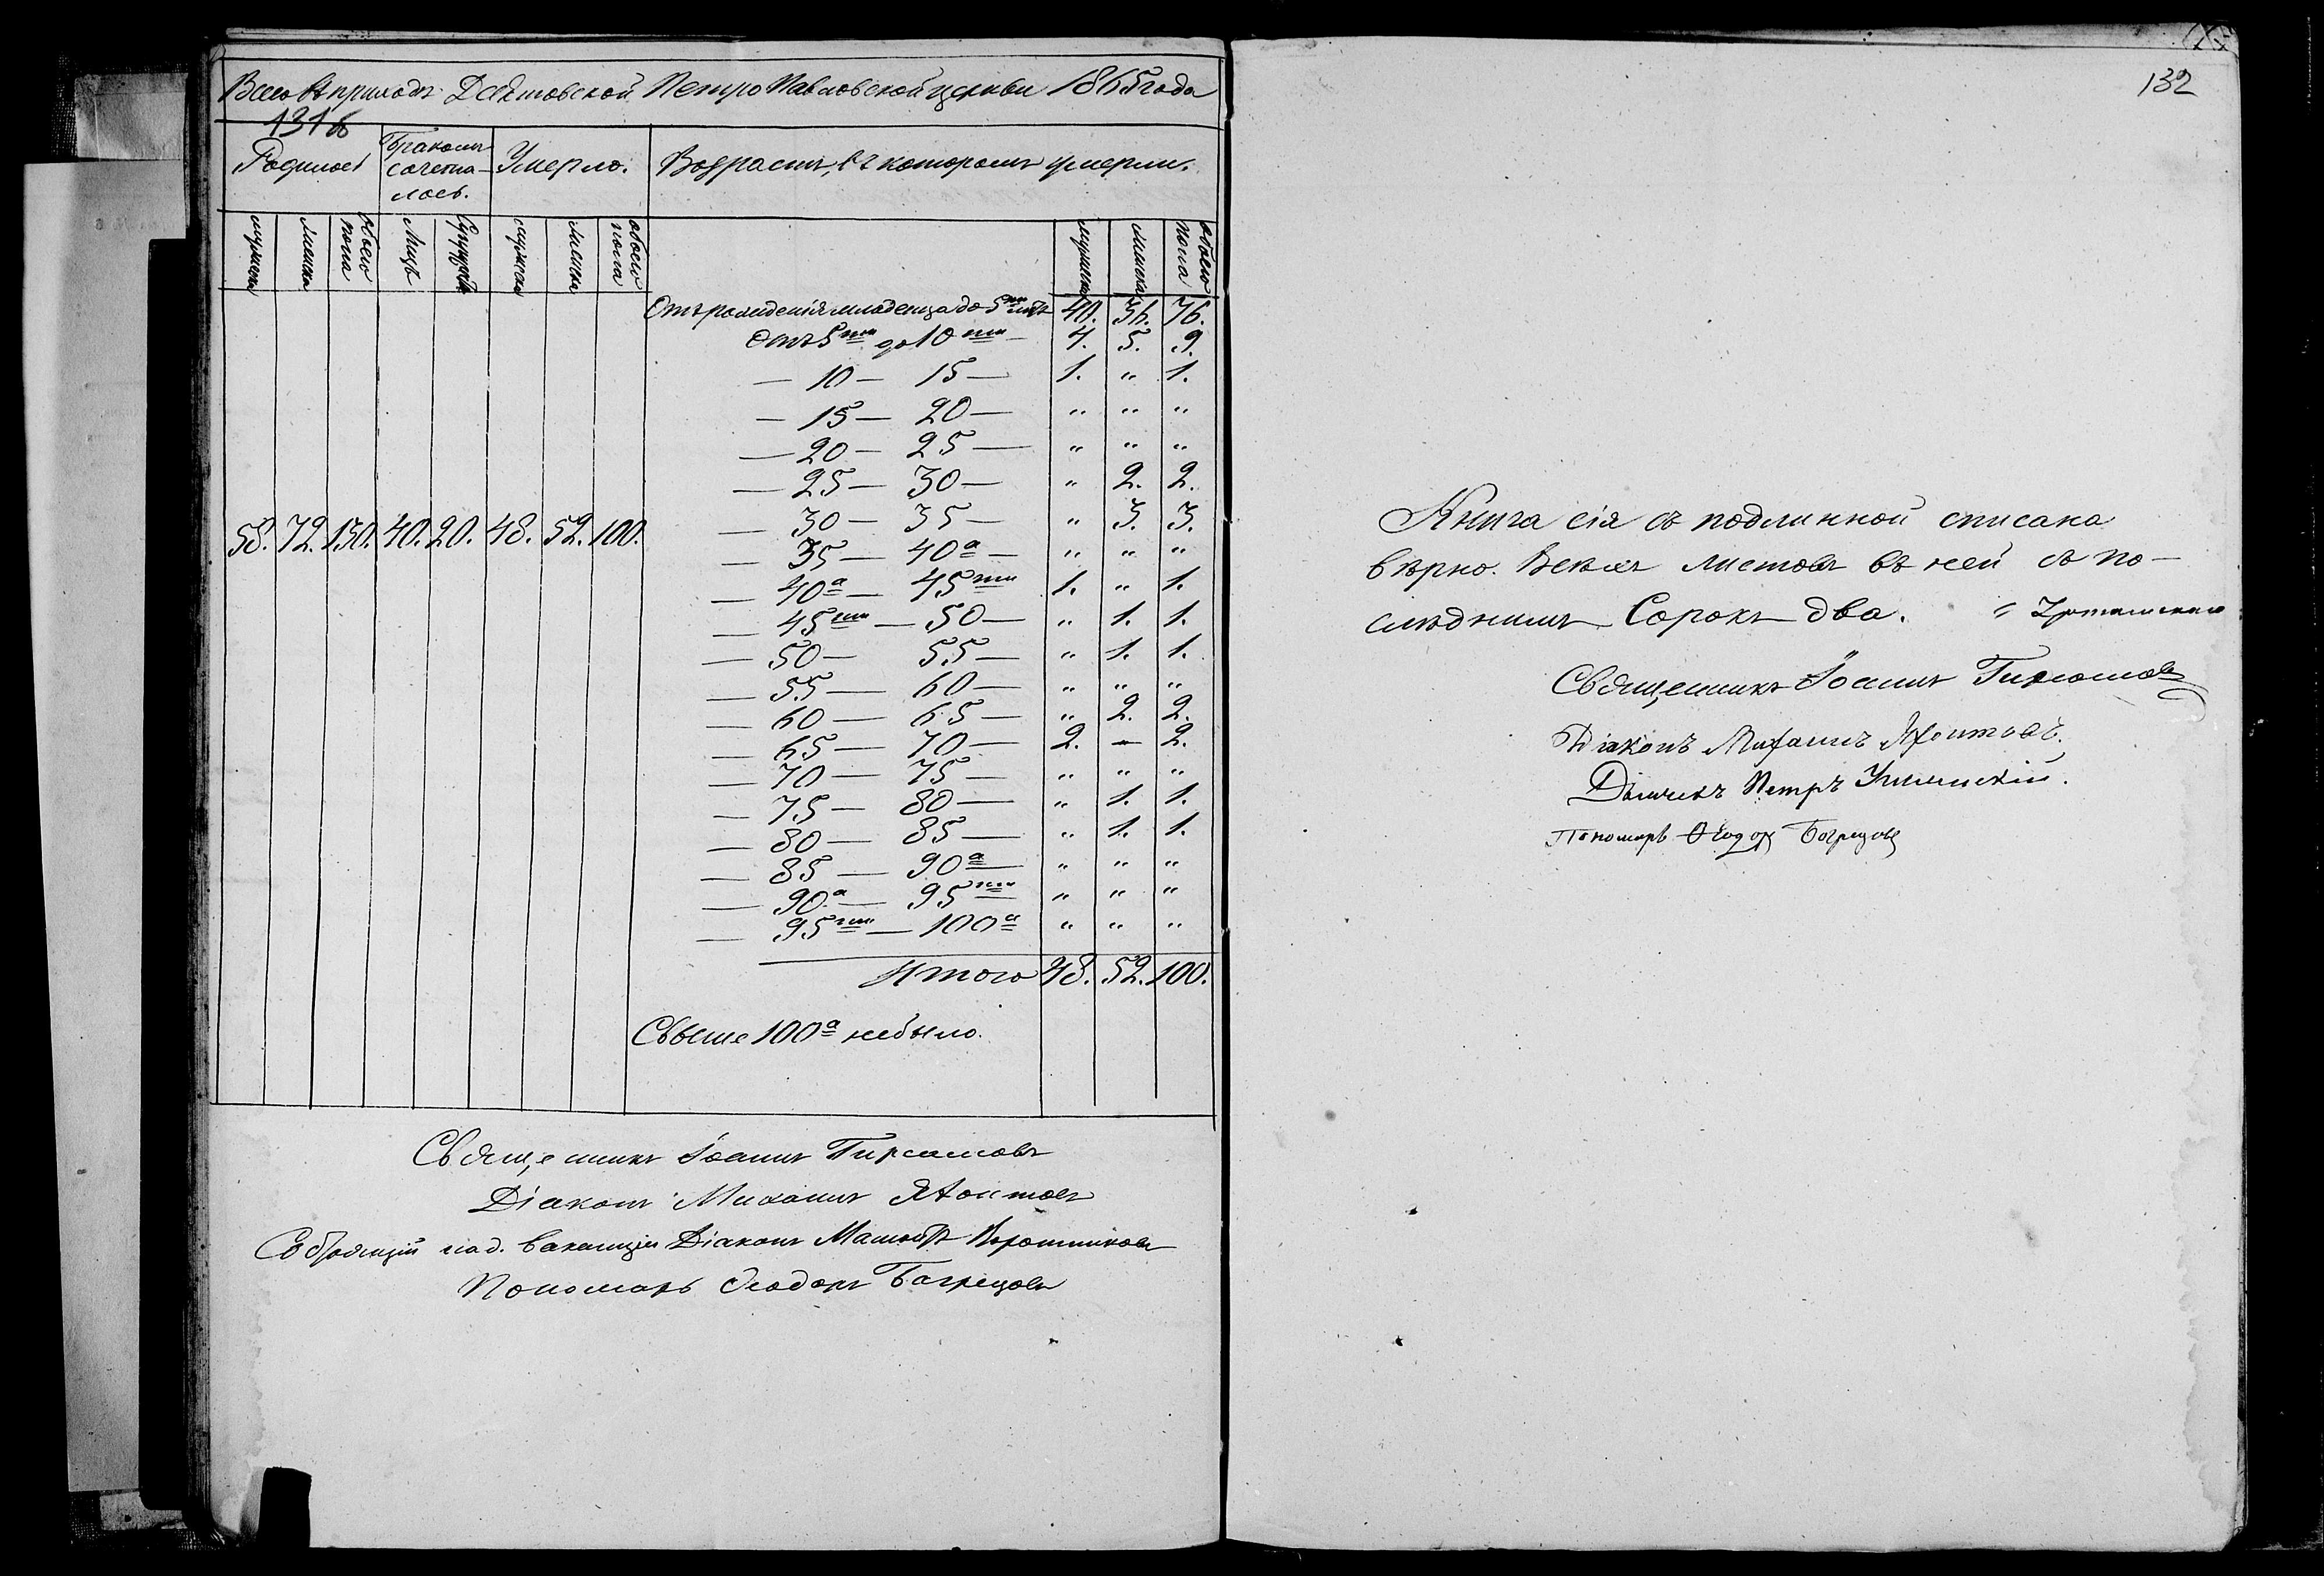 Всего въ приходѣ Петро Павловской церкви 1865 года
131 об
Родилось
Бракомъ сочета-лось.
Умерло.
Возрастъ, въ которомъ умерли.
мужеска
женска
обоего пола
Лицъ
Супружествъ
мужеска
женска
обоего пола
мужеска
женска
обоего пола
58. 72. 130. 40. 20. 48. 52. 100.
Отъ рожденія младенца до 5ти лѣтъ 40. 36. 76.
Отъ 5ти до 10ти — 4. 5. 9.
— 10 — 15 — 1. " 1.
— 15 — 20 — " " "
— 20 — 25 — " " "
— 25 — 30 — " 2. 2.
— 30 — 35 — " 3. 3.
— 35 — 40а — " " "
— 40а — 45ти 1. " 1.
— 45ти — 50 — " 1. 1.
— 50 — 55 — " 1. 1.
— 55 — 60 — " " "
— 60 — 65 — " 2. 2.
— 65 — 70 — 2. — 2.
— 70 — 75 — " " "
— 75 — 80 — " 1. 1.
— 80 — 85 — " 1. 1.
— 85 — 90а — " " "
— 90а — 95ти " " "
— 95ти — 100а " " "
Итого 48. 52. 100.
Свыше 100а небыло.
Священникъ Іоаннъ
Діаконъ Михаилъ
вакансіи Діаконъ
Пономарь Ѳеодоръ Багрецовъ
132
Книга сія съ подлинной списана
вѣрно. Всѣхъ листовъ въ ней съ по-
слѣднимъ Сорокъ два.
Священникъ Іоаннъ
Діаконъ Михаилъ
Дьячекъ Петръ
Пономарь Ѳеодоръ Багрецовъ